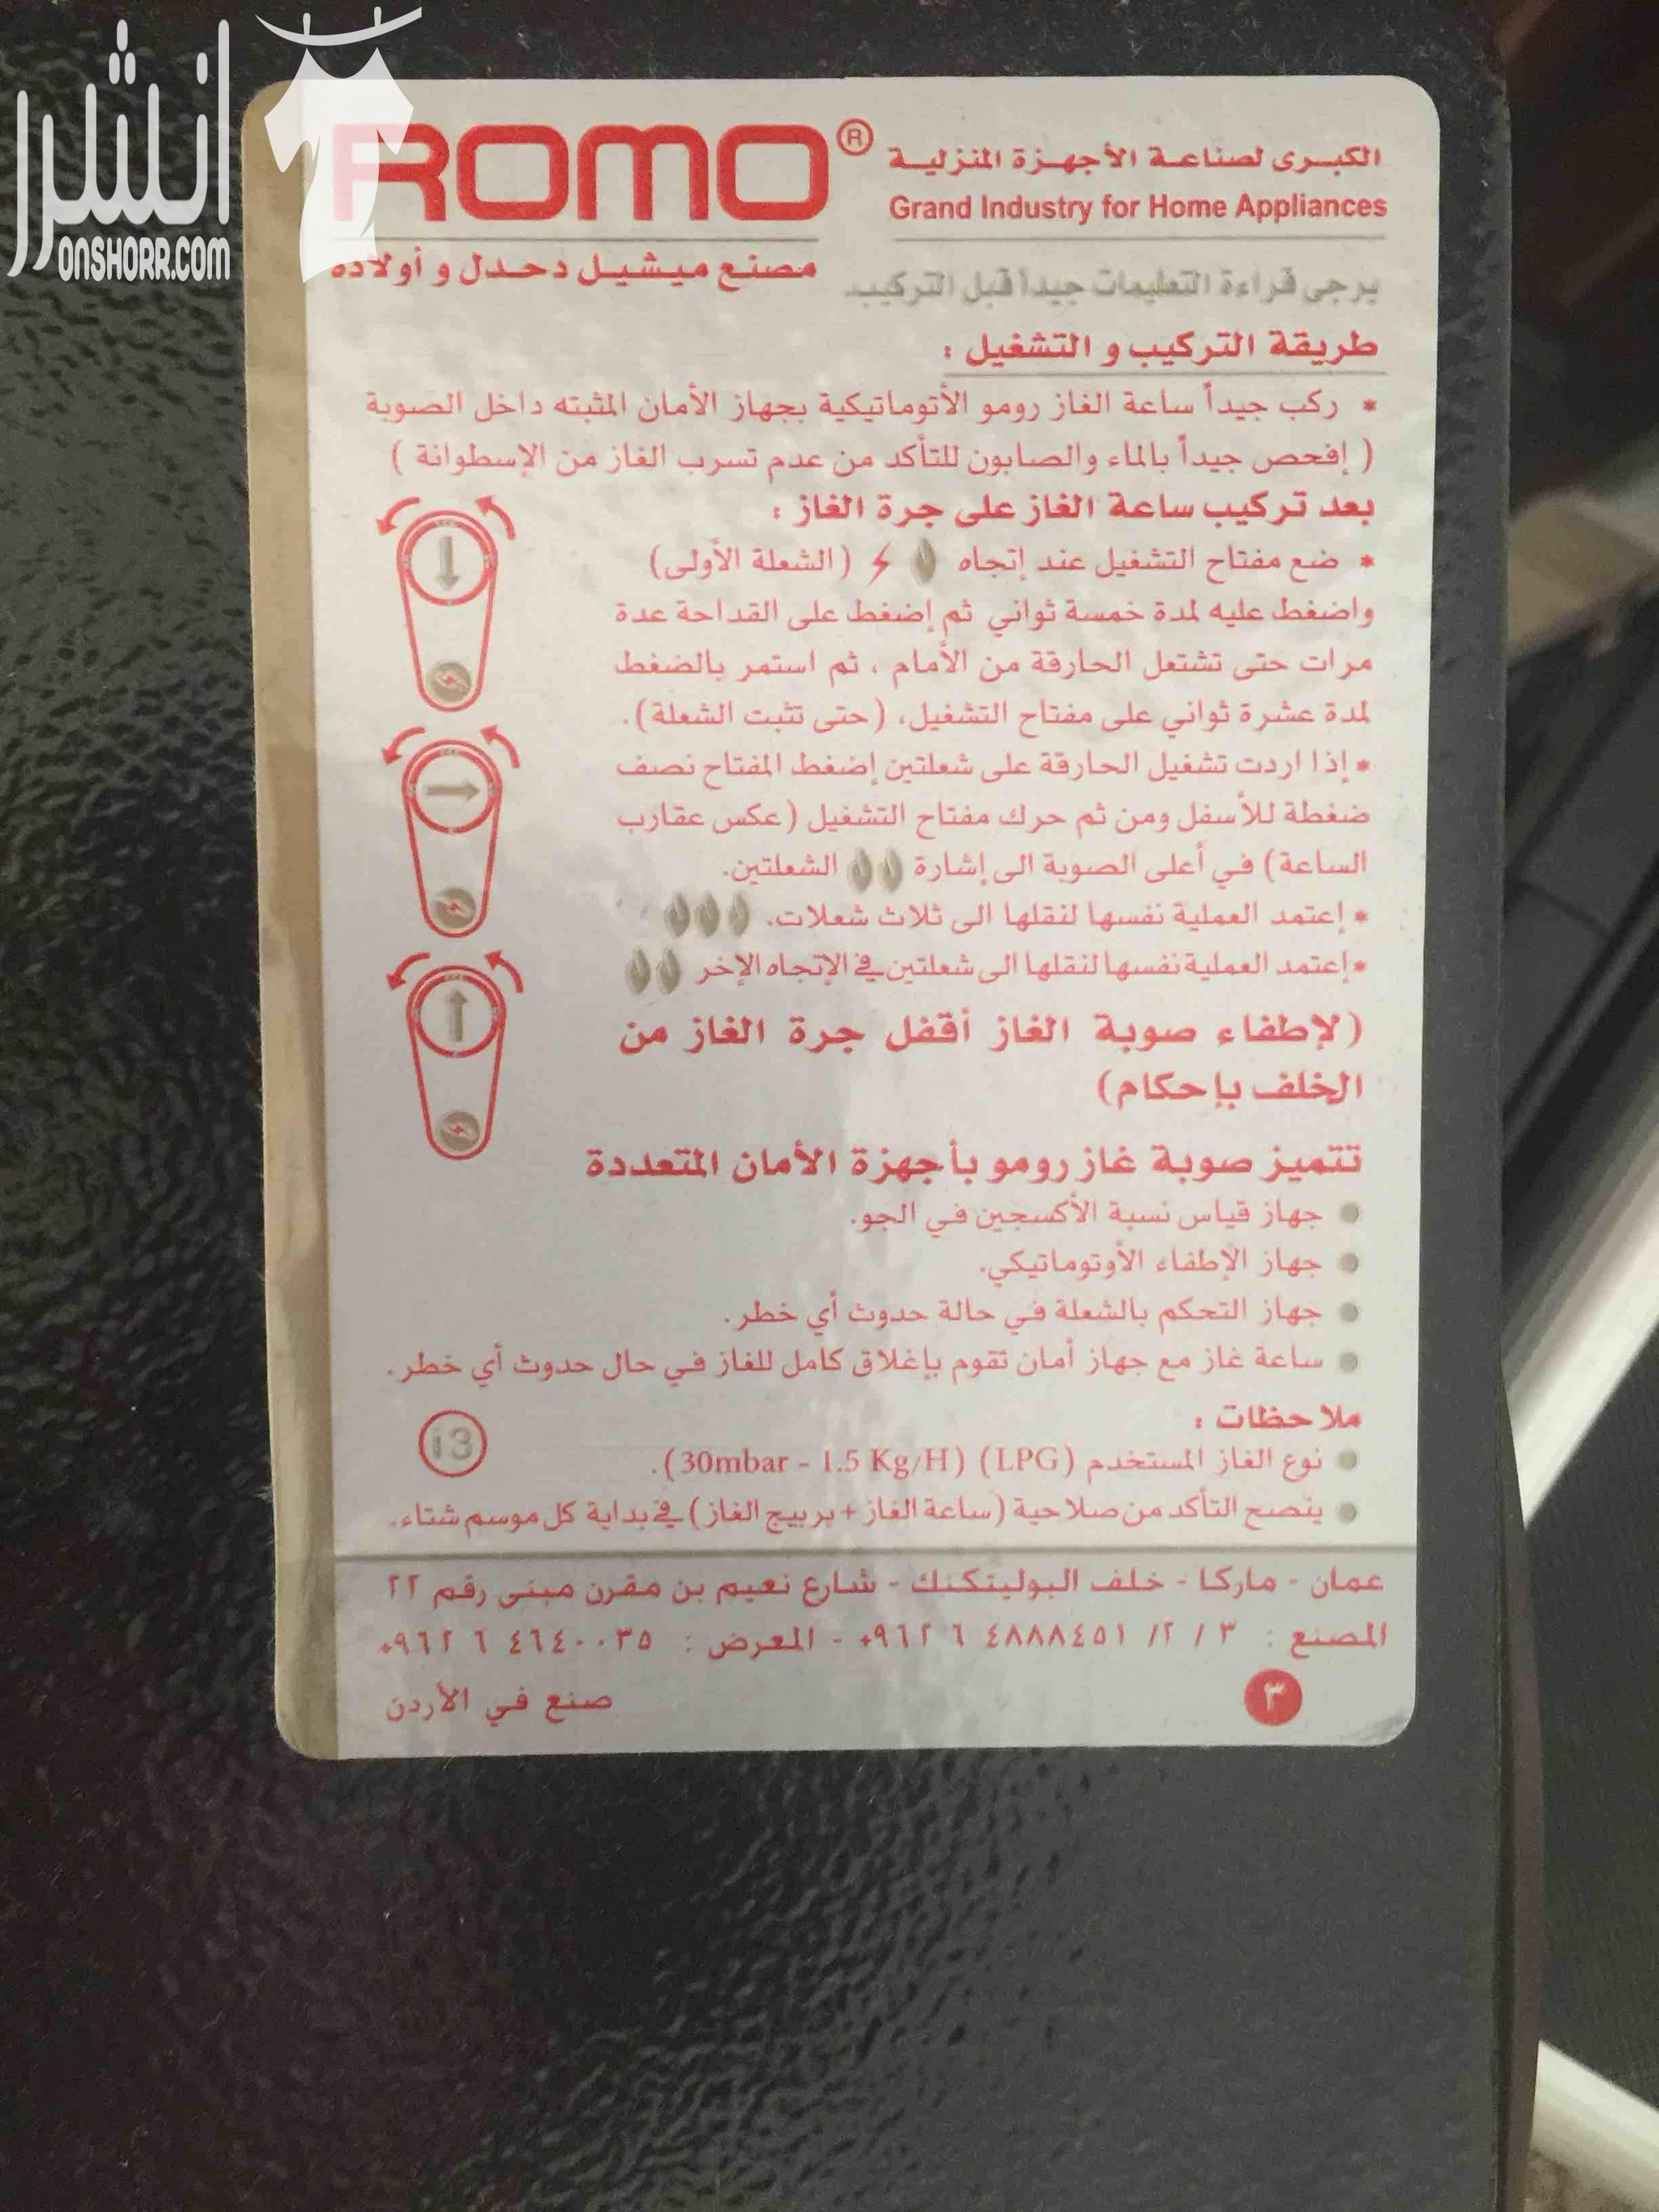 انشر
ONSHORR.COM
ROMO®
الكبرى لصناعة الأجهزة المنزلية
Grand Industry for Home Appliances
مصنع ميشيل دحدل و أولاده
يرجى قراءة التعليمات جيداً قبل التركيب.
طريقة التركيب و التشغيل :
* ركب جيداً ساعة الغاز رومو الأتوماتيكية بجهاز الأمان المثبته داخل الصوبة
( إفحص جيداً بالماء والصابون للتأكد من عدم تسرب الغاز من الإسطوانة )
بعد تركيب ساعة الغاز على جرة الغاز :
* ضع مفتاح التشغيل عند إتجاه (الشعلة الأولى)
واضغط عليه لمدة خمسة ثواني ثم إضغط على القداحة عدة
مرات حتى تشتعل الحارقة من الأمام ، ثم استمر بالضغط
لمدة عشرة ثواني على مفتاح التشغيل، (حتى تثبت الشعلة).
* إذا اردت تشغيل الحارقة على شعلتين إضغط المفتاح نصف
ضغطة للأسفل ومن ثم حرك مفتاح التشغيل (عكس عقارب
الساعة) في أعلى الصوبة الى إشارة الشعلتين.
* إعتمد العملية نفسها لنقلها الى ثلاث شعلات.
* إعتمد العملية نفسها لنقلها الى شعلتين في الإتجاه الإخر
(لإطفاء صوبة الغاز أقفل جرة الغاز من
الخلف بإحكام)
تتميز صوبة غاز رومو بأجهزة الأمان المتعددة
● جهاز قياس نسبة الأكسجين في الجو.
● جهاز الإطفاء الأوتوماتيكي.
● جهاز التحكم بالشعلة في حالة حدوث أي خطر.
● ساعة غاز مع جهاز أمان تقوم بإغلاق كامل للغاز في حال حدوث أي خطر.
ملاحظات :
● نوع الغاز المستخدم (LPG) (30mbar - 1.5 Kg/H).
i3
● ينصح التأكد من صلاحية (ساعة الغاز + بربيج الغاز) في بداية كل موسم شتاء.
عمان - ماركا - خلف البوليتكنك - شارع نعيم بن مقرن مبنى رقم ٢٢
المصنع : ٣ / ٢/ ٤٨٨٨٤٥١ ٦ ٩٦٢+ - المعرض : ٤٦٤٠٠٣٥ ٦ ٩٦٢+
٣
صنع في الأردن